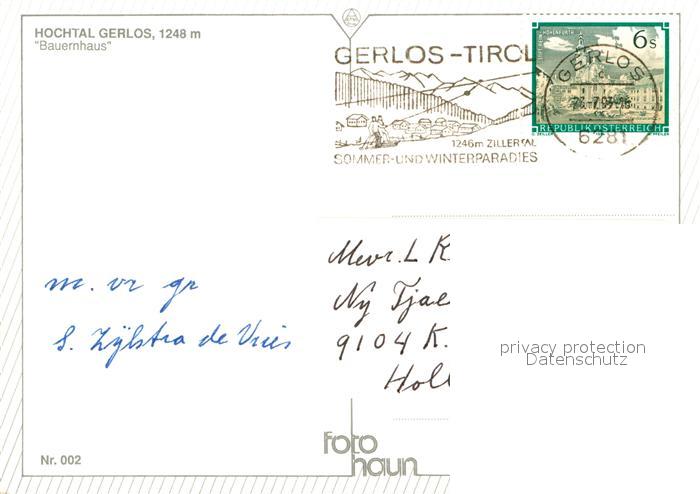 HOCHTAL GERLOS, 1248 m
"Bauernhaus"
GERLOS-TIROL
1246m ZILLERTAL
SOMMER-UND WINTERPARADIES
6s
STIFT REIN-HOHENFURTH
REPUBLIK ÖSTERREICH
GERLOS
6281
m. vr gr
S. Zijlstra de Vries
Mevr. L K
Ny Tjae
9104 K.
Holl
privacy protection
Datenschutz
foto
haun
Nr. 002